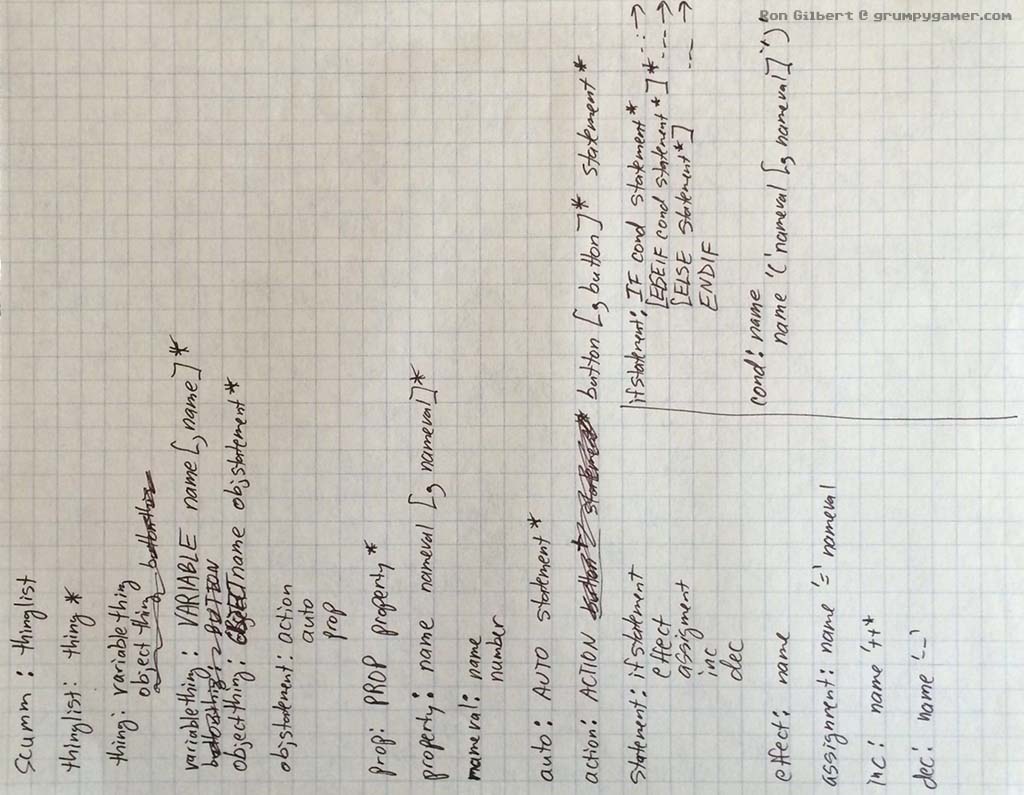 Ron Gilbert @ grumpygamer.com
scumm : thinglist
thinglist: thing *
thing: variablething
objectthing
variablething : VARIABLE name [, name] *
objectthing: OBJECT name objstatement *
objstatement: action
auto
prop
prop: PROP property *
property: name nameval [, nameval]*
nameval: name
number
auto : AUTO statement *
action: ACTION button [, button]* statement *
statement: ifstatement
effect
assignment
inc
dec
effect: name
assignment: name '=' nameval
inc : name '++'
dec: name '--'
ifstatement: IF cond statement*
[ELSEIF cond statement*]*
[ELSE statement*]
ENDIF
cond: name
name '(' nameval [, nameval] ')'